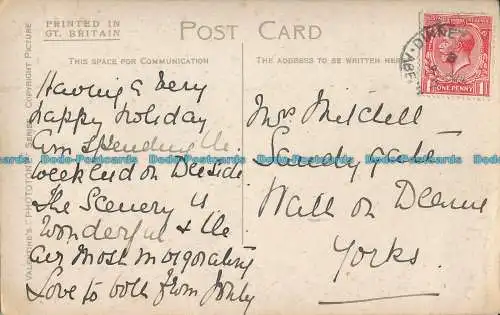 PRINTED IN
GT. BRITAIN
POST CARD
THIS SPACE FOR COMMUNICATION
THE ADDRESS TO BE WRITTEN HERE
VALENTINE'S "PHOTOTYPE" SERIES COPYRIGHT PICTURE
ONE PENNY
DINNET
ABE
Having a very
happy holiday
am spending the
weekend on Deeside
The Scenery is
wonderful & the
air most invigorating
Love to both from
Mrs Mitchell
Sandygate
Wath on Dearne
Yorks.
Dodo-Postcards Dodo-Postcards Dodo-Postcards Dodo-Postcards